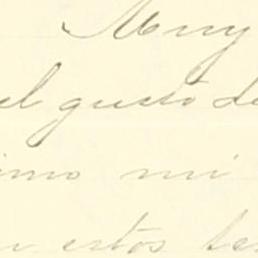 Muy
el gusto de
imo mi
estos